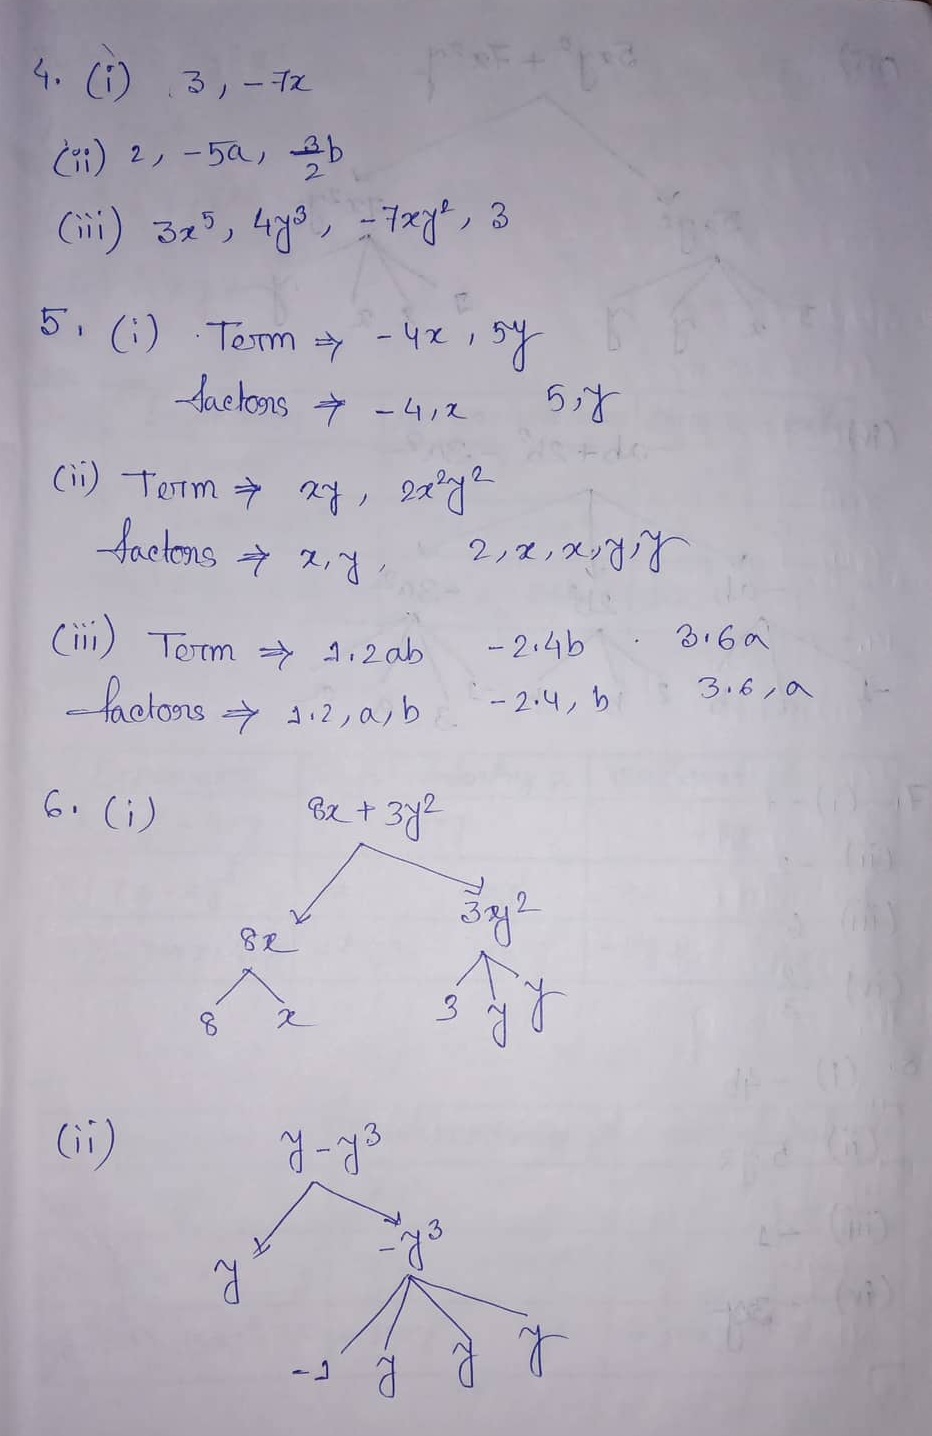 4. (i) 3, -7x
(ii) 2, -5a, 3/2 b
(iii) 3x⁵, 4y³, -7xy², 3
5. (i) Term ⇒ -4x, 5y
factors ⇒ -4, x 5, y
(ii) Term ⇒ xy, 2x²y²
factors ⇒ x, y, 2, x, x, y, y
(iii) Term ⇒ 1.2ab -2.4b 3.6a
factors ⇒ 1.2, a, b -2.4, b 3.6, a
6. (i) 8x + 3y²
8x 3y²
8 x 3 y y
(ii) y - y³
y -y³
-1 y y y